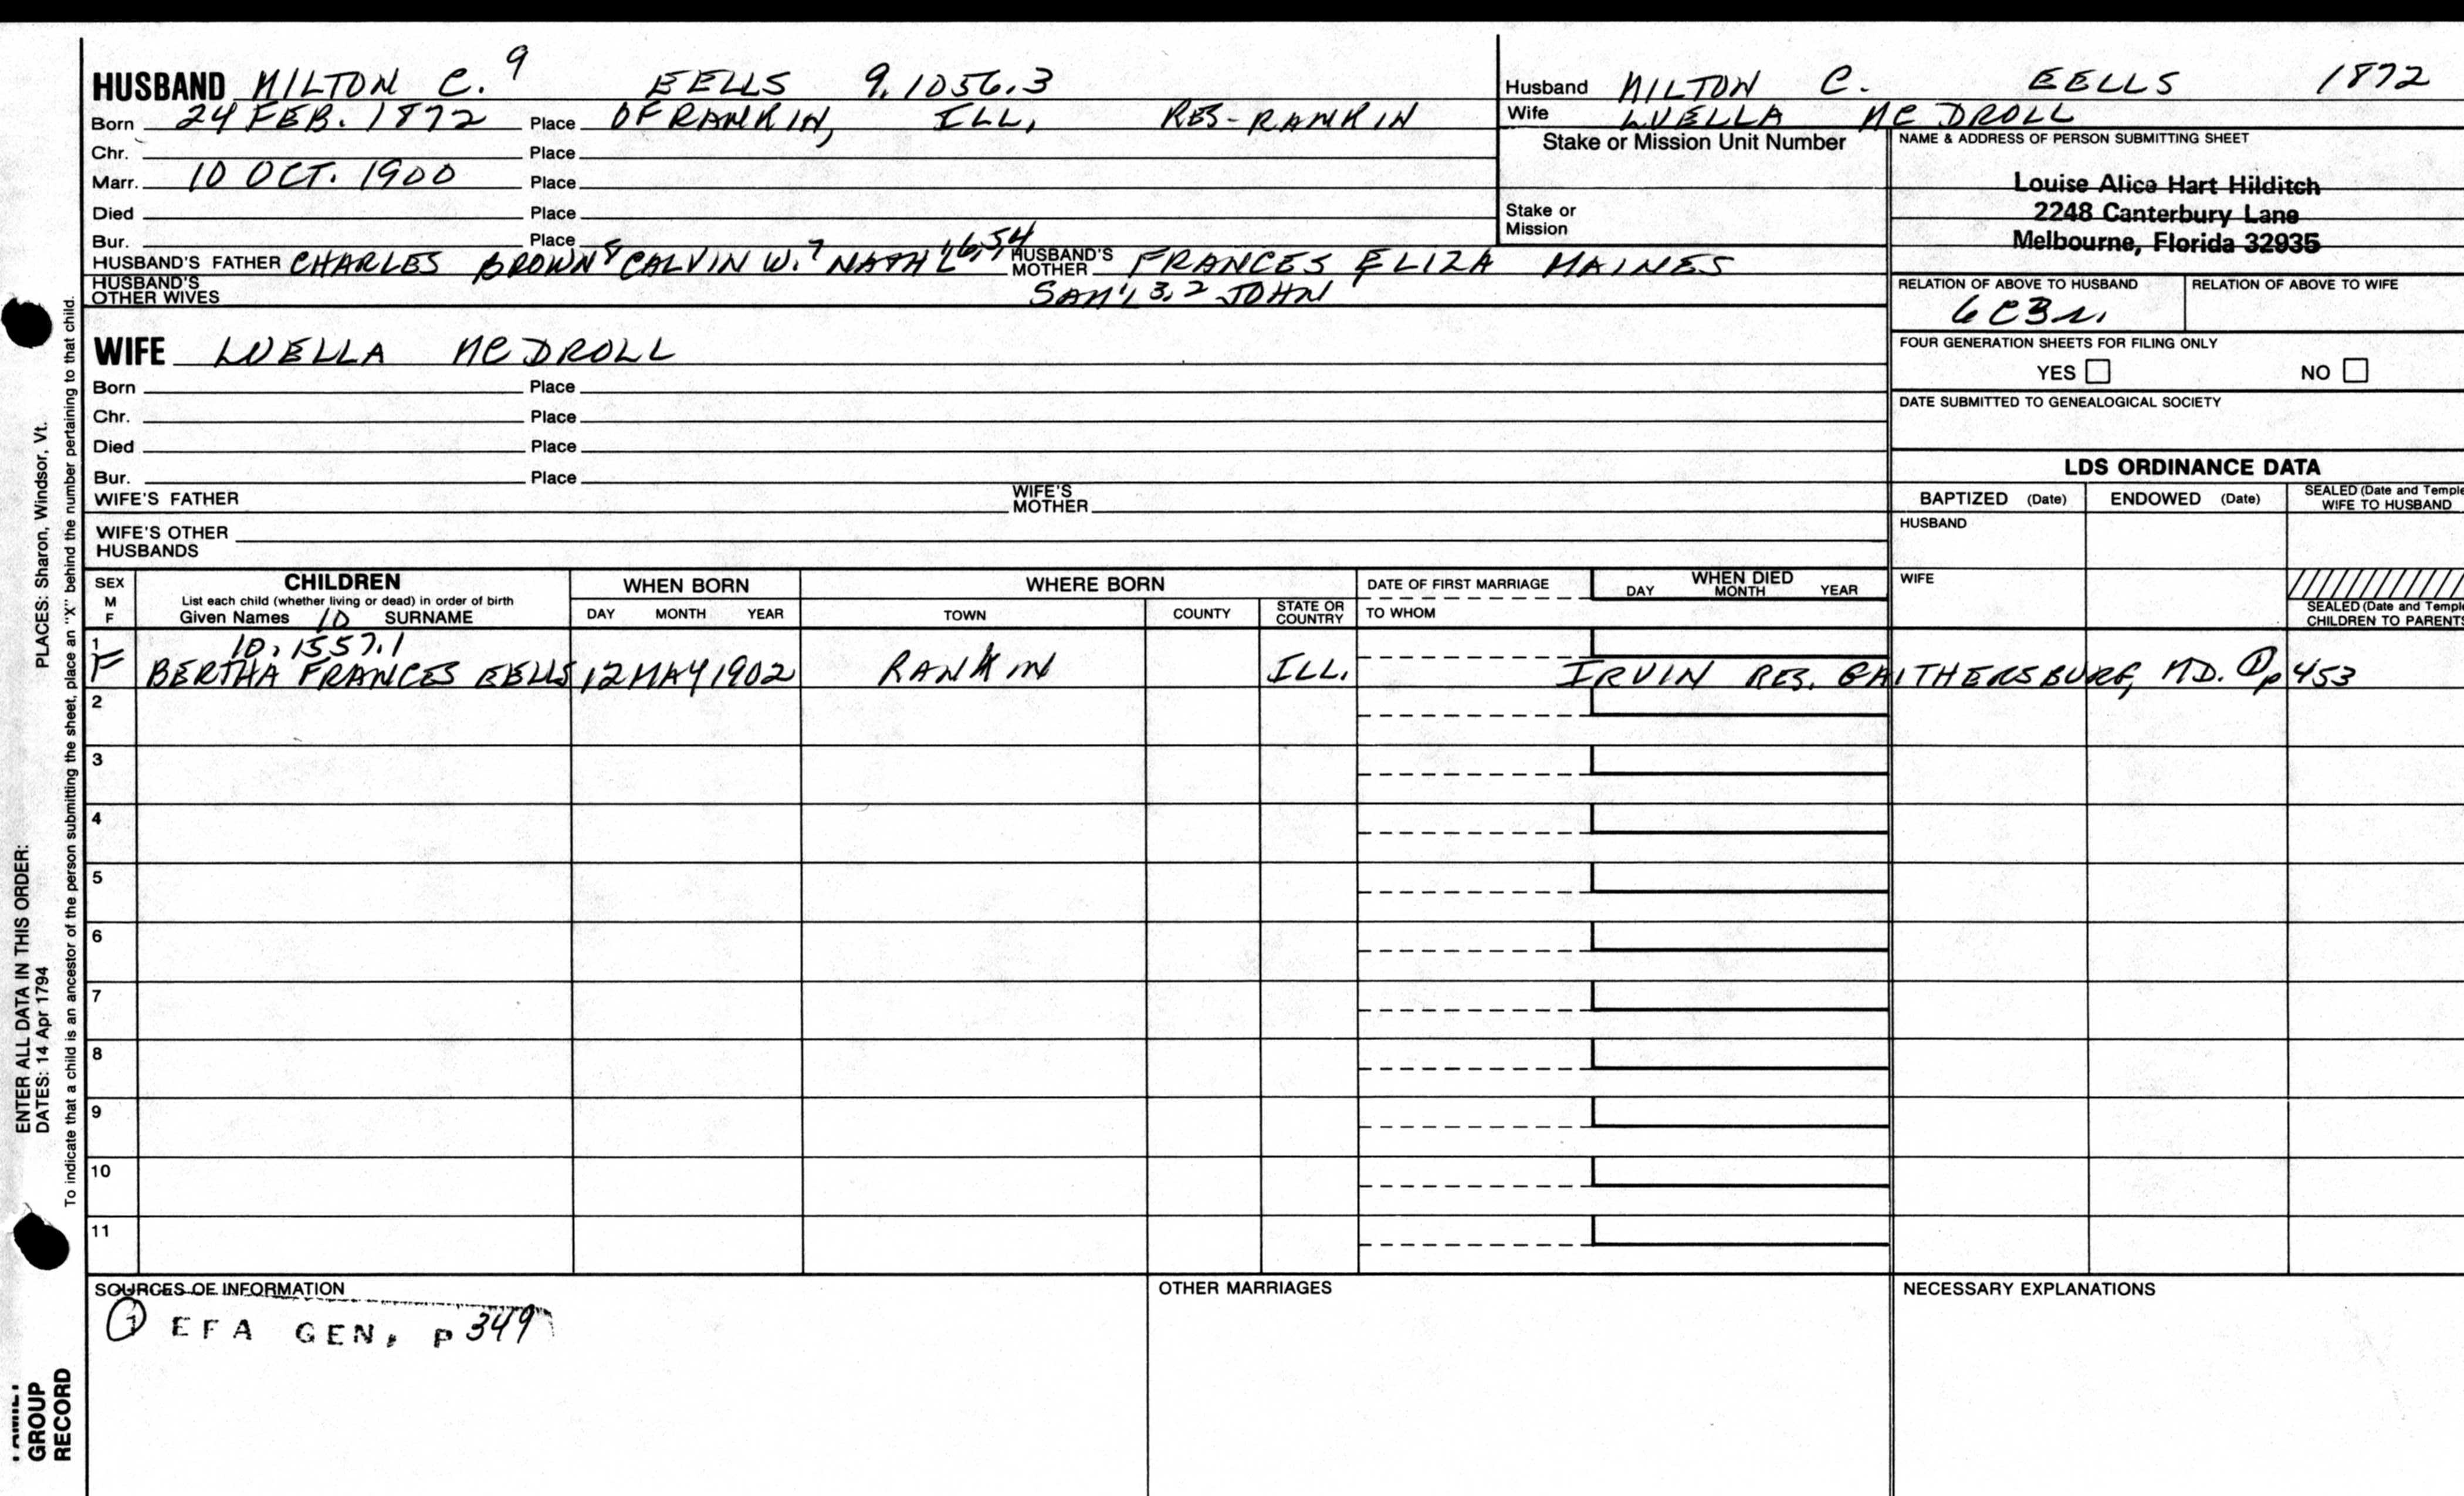 HUSBAND MILTON C. 9 EELLS 9.1056.3
Born 24 FEB. 1872 Place OF RANKIN, ILL, RES-RANKIN
Chr. Place
Marr. 10 OCT. 1900 Place
Died Place
Bur. Place
HUSBAND'S FATHER CHARLES BROWN 8 CALVIN W. 7 NATH'L 6,5,4 HUSBAND'S MOTHER FRANCES ELIZA MAINES
HUSBAND'S OTHER WIVES SAM'L 3,2 JOHN
Husband MILTON C. EELLS 1872
Wife LUELLA MC DROLL
Stake or Mission Unit Number
Stake or
Mission
NAME & ADDRESS OF PERSON SUBMITTING SHEET
Louise Alice Hart Hilditch
2248 Canterbury Lane
Melbourne, Florida 32935
RELATION OF ABOVE TO HUSBAND RELATION OF ABOVE TO WIFE
6C3r.
FOUR GENERATION SHEETS FOR FILING ONLY
YES NO
DATE SUBMITTED TO GENEALOGICAL SOCIETY
WIFE LUELLA MC DROLL
Born Place
Chr. Place
Died Place
Bur. Place
WIFE'S FATHER WIFE'S MOTHER
WIFE'S OTHER
HUSBANDS
LDS ORDINANCE DATA
BAPTIZED (Date) ENDOWED (Date) SEALED (Date and Temple
WIFE TO HUSBAND
HUSBAND
WIFE
SEALED (Date and Temple
CHILDREN TO PARENTS
SEX
M
F
CHILDREN
List each child (whether living or dead) in order of birth
Given Names 10 SURNAME
WHEN BORN
DAY MONTH YEAR
WHERE BORN
TOWN COUNTY STATE OR COUNTRY
DATE OF FIRST MARRIAGE
TO WHOM
WHEN DIED
DAY MONTH YEAR
1 10.1557.1
F BERTHA FRANCES EELLS 12 MAY 1902 RANKIN ILL. IRVIN RES. GAITHERSBURG, MD. ① p 453
2
3
4
5
6
7
8
9
10
11
SOURCES OF INFORMATION
① EFA GEN. p 349
OTHER MARRIAGES
NECESSARY EXPLANATIONS
ENTER ALL DATA IN THIS ORDER:
DATES: 14 Apr 1794 PLACES: Sharon, Windsor, Vt.
To indicate that a child is an ancestor of the person submitting the sheet, place an "X" behind the number pertaining to that child.
GROUP
RECORD